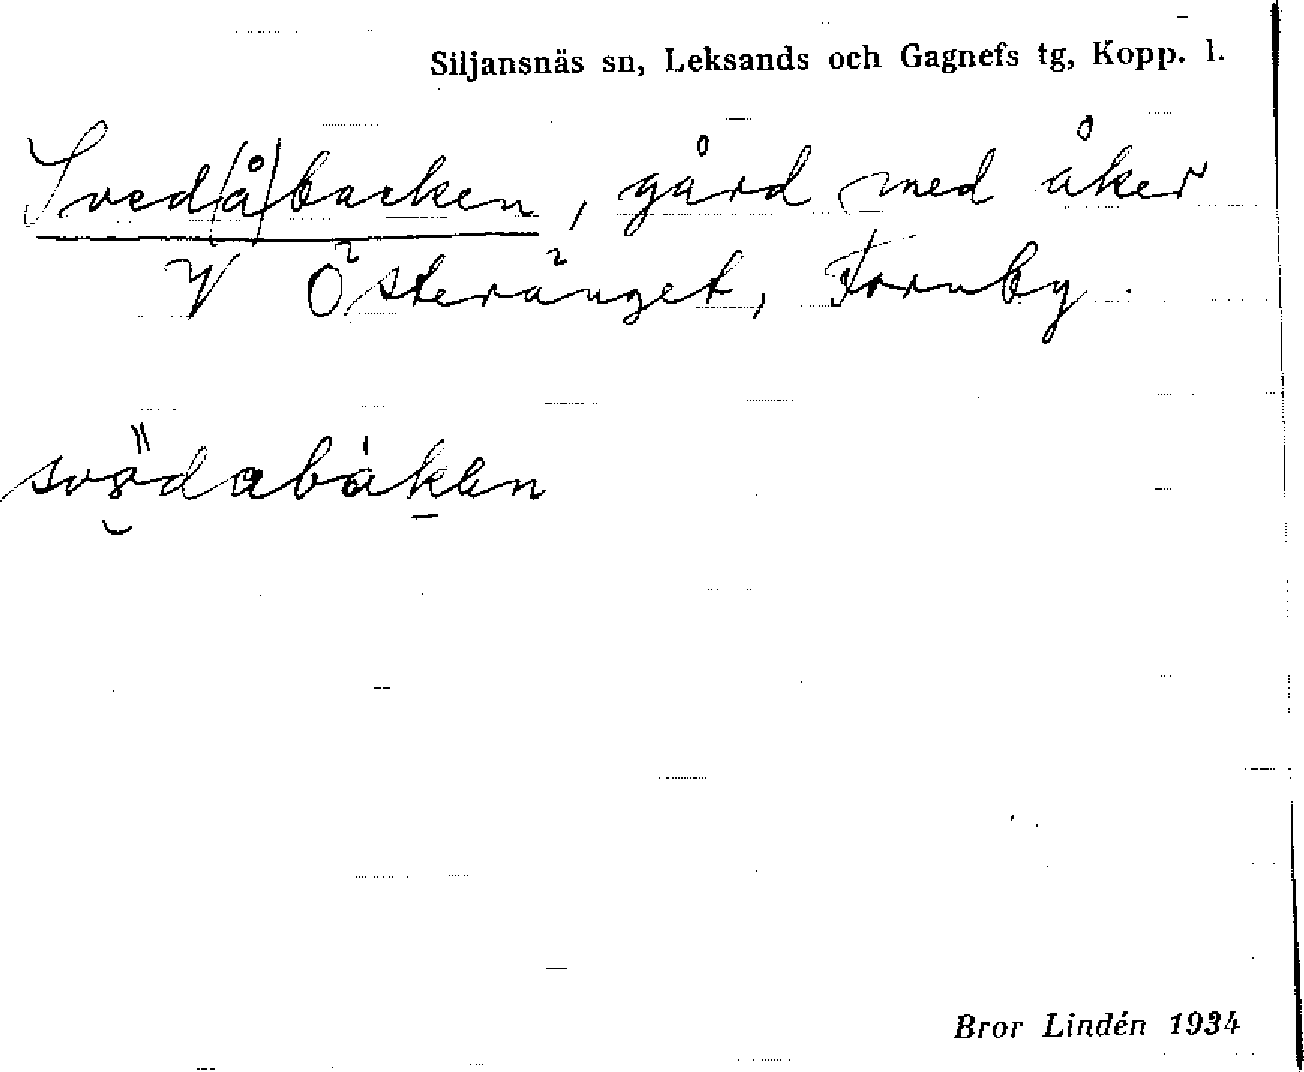 Siljansnäs sn, Leksands och Gagnefs tg, Kopp. l.
Sved(å)backen, gård med åker
V Österänget, Fornby.
svödabàken
Bror Lindén 1934